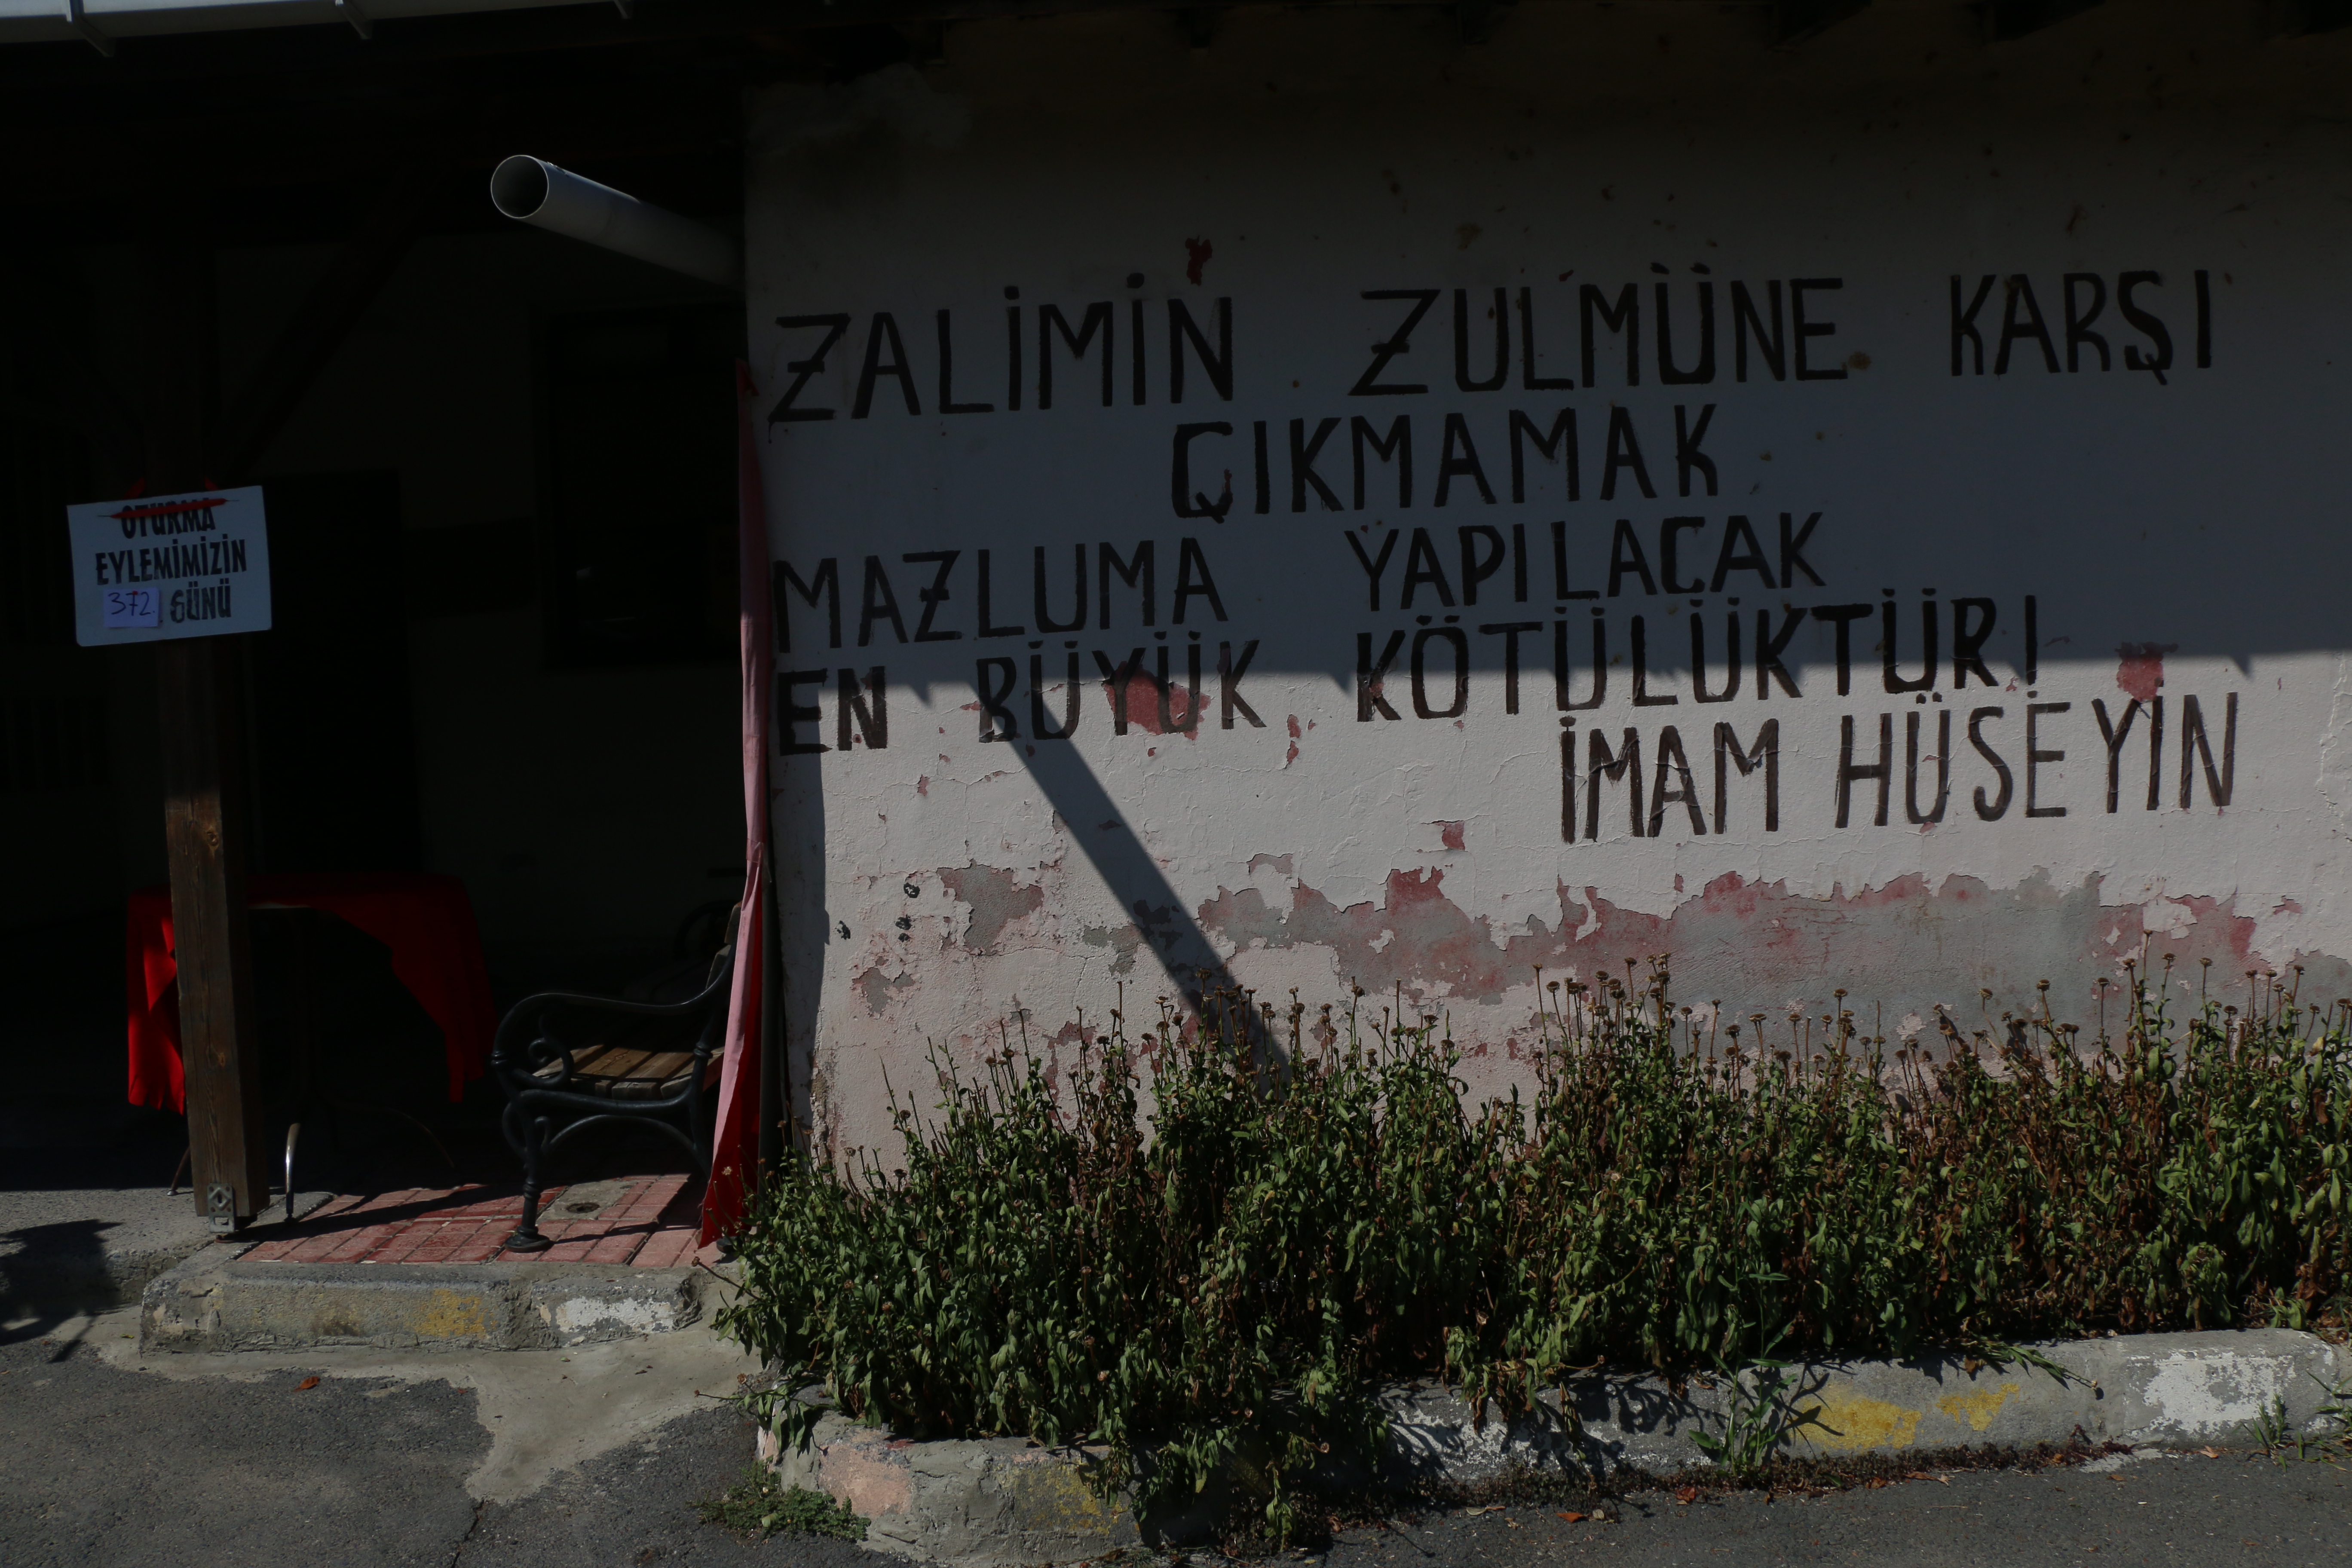 OTURMA
EYLEMİMİZİN
372. GÜNÜ
ZALİMİN ZULMÜNE KARŞI
ÇIKMAMAK
MAZLUMA YAPILACAK
EN BÜYÜK KÖTÜLÜKTÜR!
İMAM HÜSEYİN